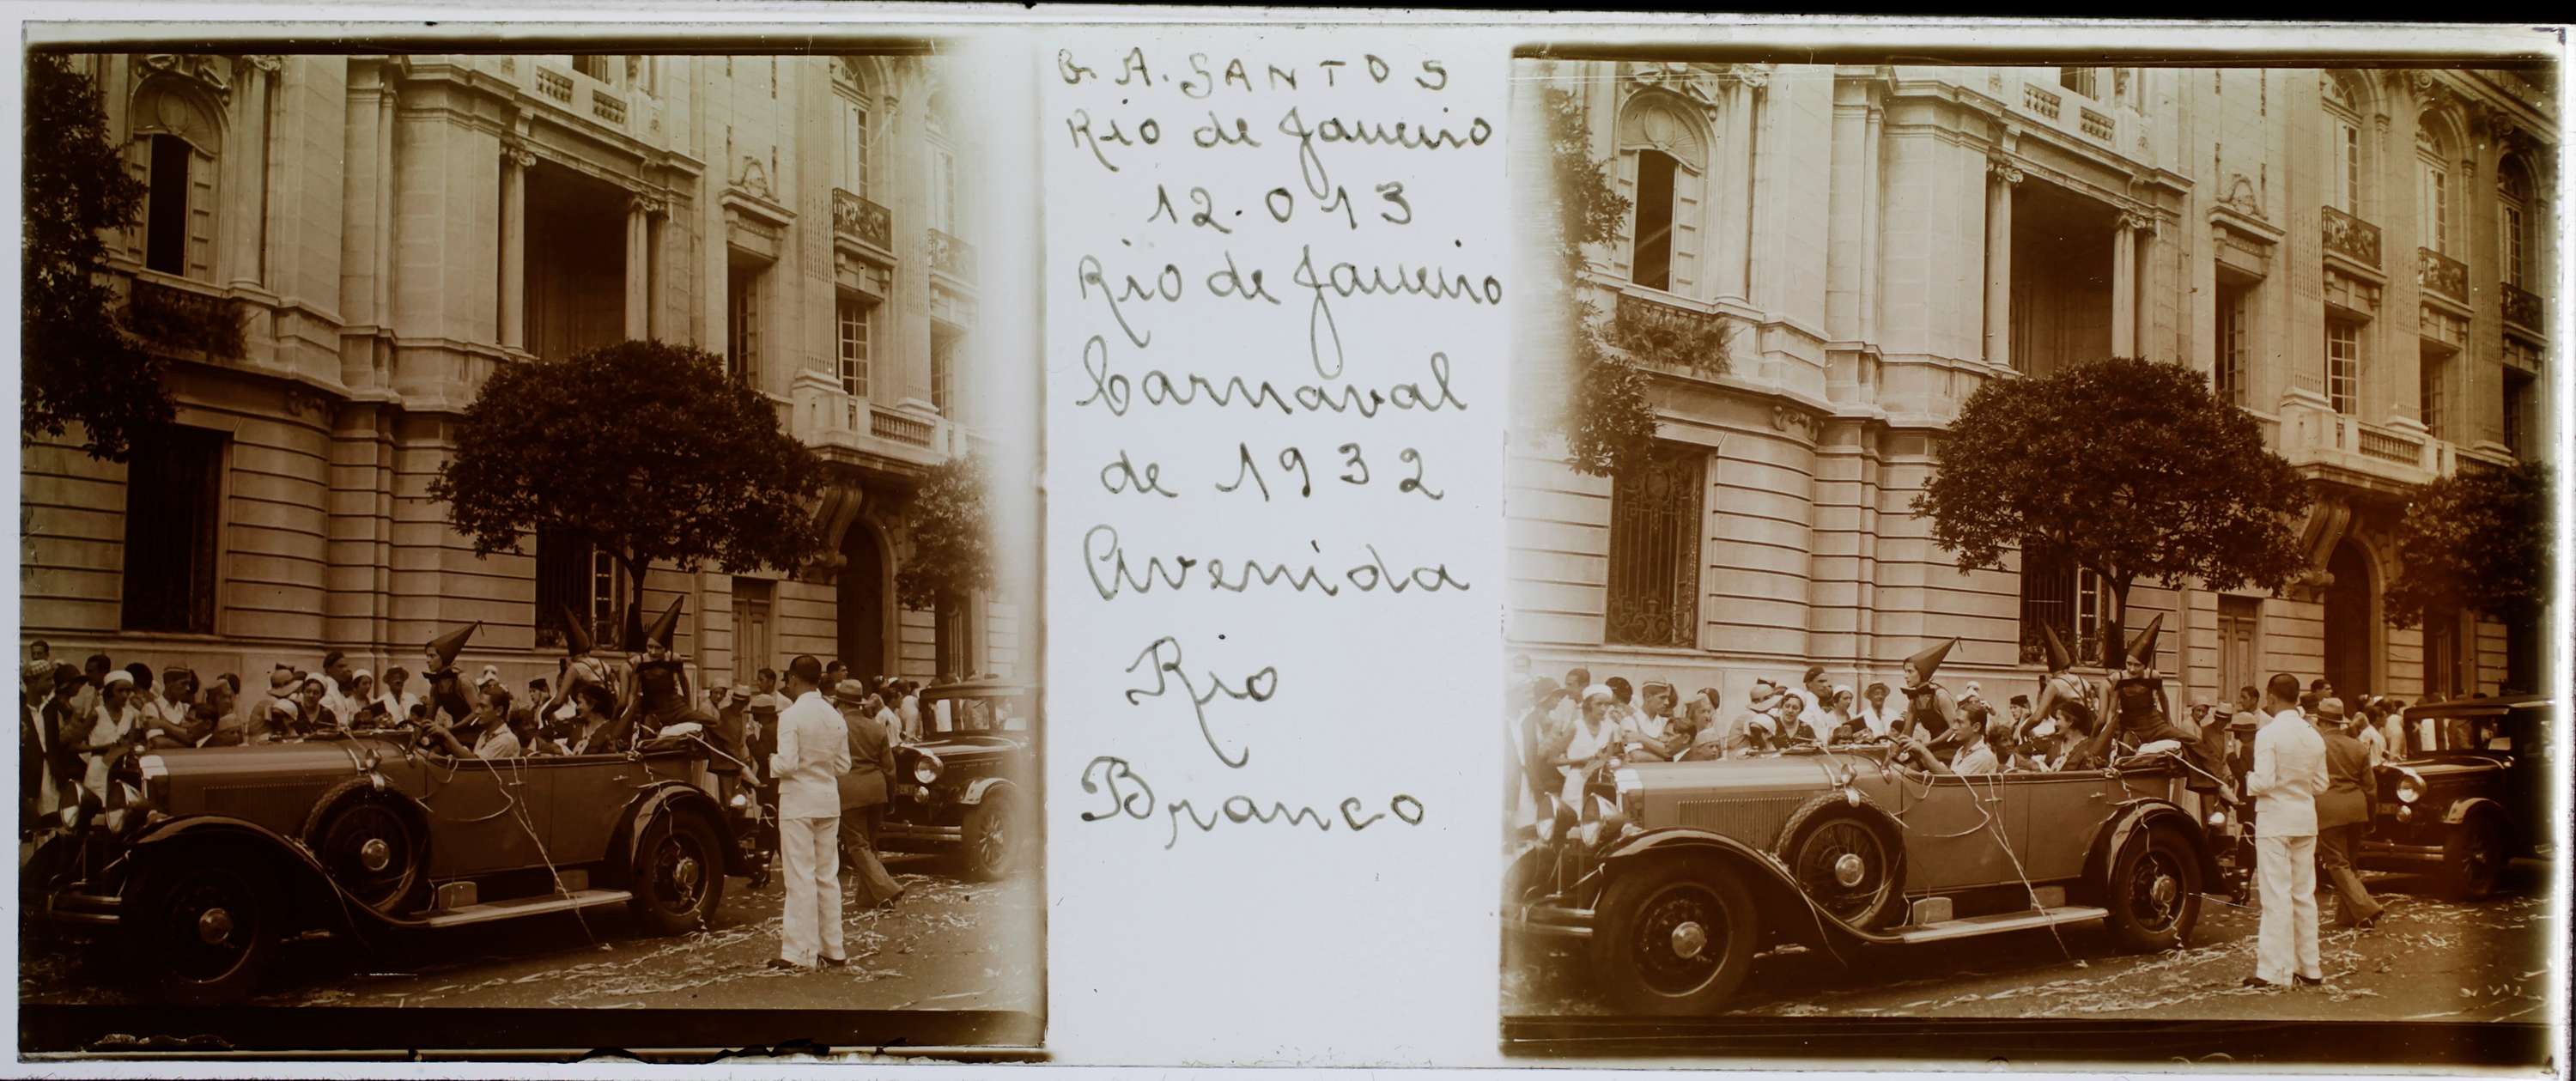 G. A. SANTOS
Rio de Janeiro
12.013
Rio de Janeiro
Carnaval
de 1932
Avenida
Rio
Branco